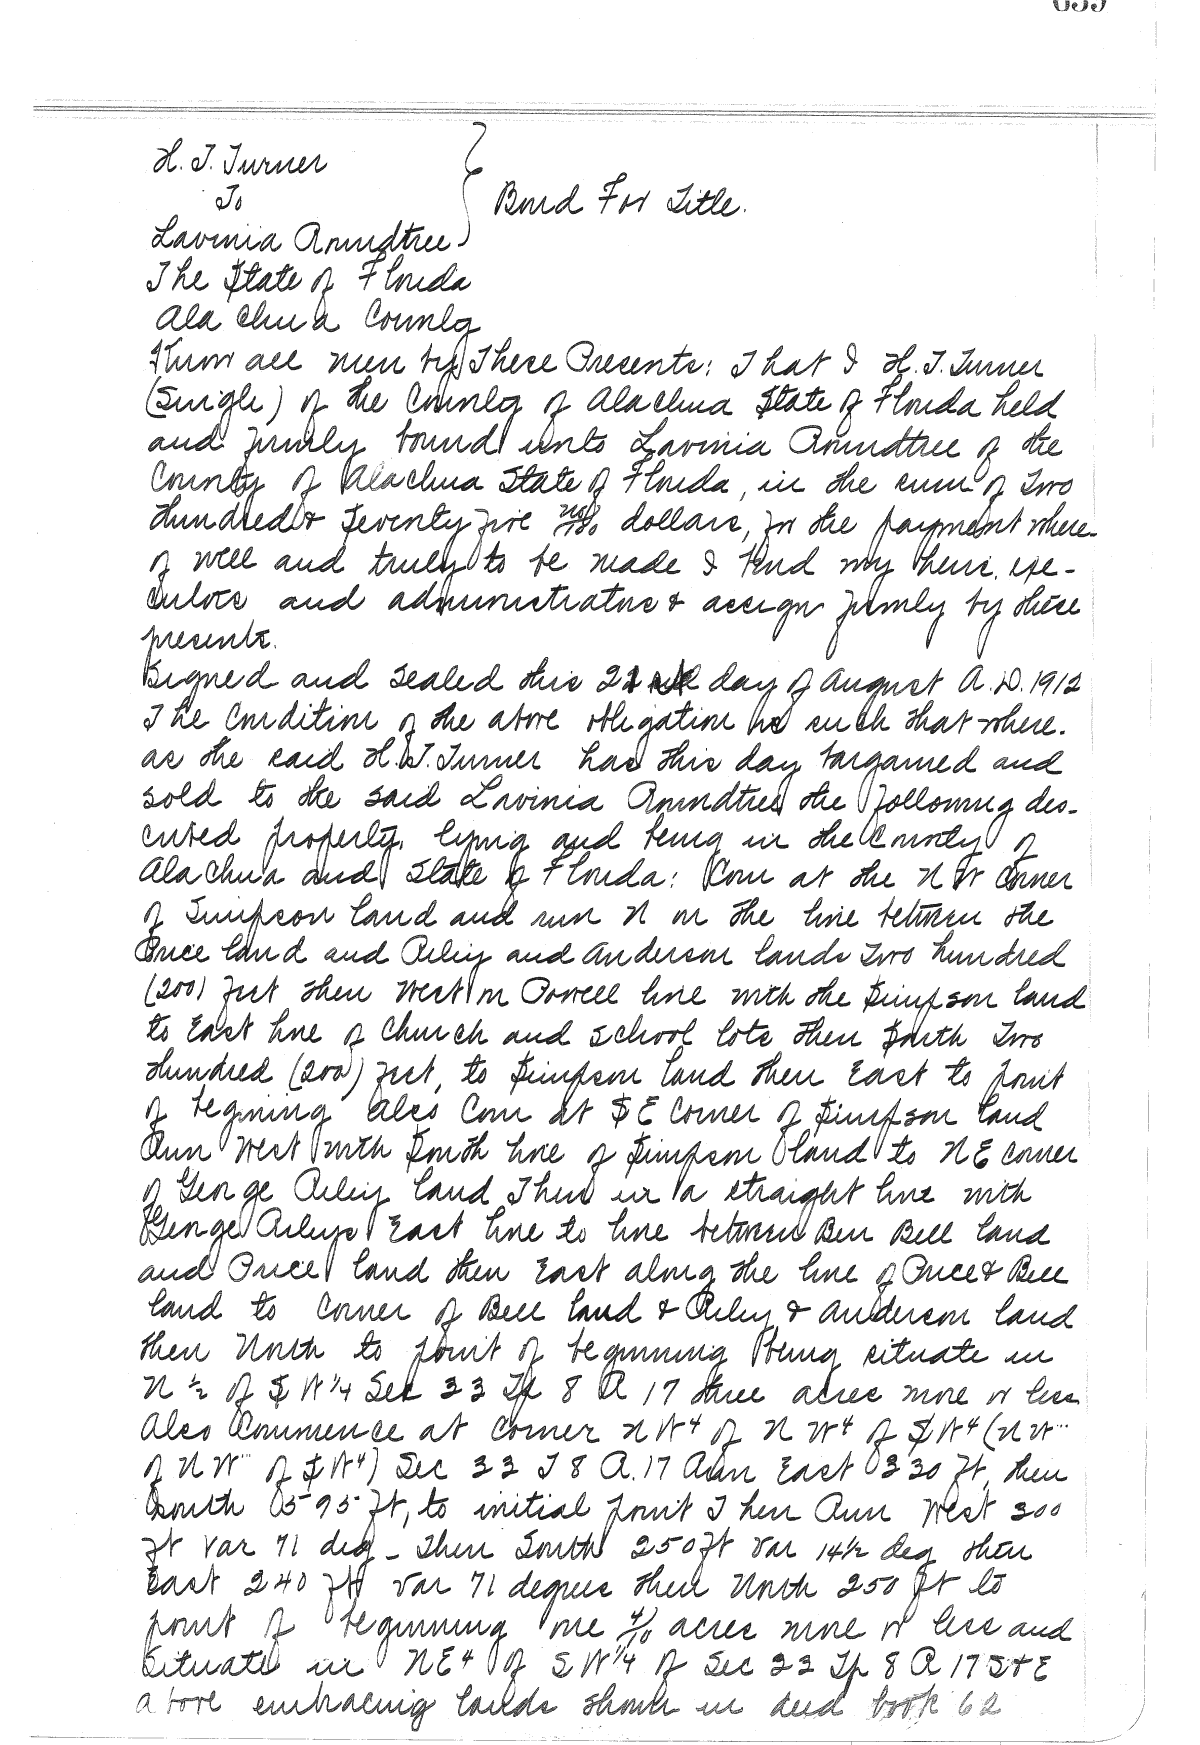 H. T. Turner
To
Bond For Title.
Lavinia Roundtree
The State of Florida
Alachua County
Know all men by These Presents: That I H. T. Turner
(Single) of the County of Alachua State of Florida held
and firmly bound unto Lavinia Roundtree of the
County of Alachua State of Florida, in the sum of Two
Hundred & Seventy five no/100 dollars, for the payment where-
of well and truly to be made I bind my heirs, exe-
cutors and administrators & assigns firmly by these
presents.
Signed and sealed this day of August A.D. 1912
The Condition of the above obligation is such that where-
as the said H. T. Turner has this day bargained and
sold to the said Lavinia Roundtree the following des-
cribed property, lying and being in the County of
Alachua and State of Florida: Com at the N W Corner
of Simpson land and run N on the line between the
Price land and Riley and Anderson lands Two hundred
(200) feet then West on Parrell line with the Simpson land
to East line of Church and School lots then South Two
Hundred (200) feet, to Simpson land then East to point
of begining Also Com at S E Corner of Simpson land
Run West with South line of Simpson land to N E corner
of George Riley land Then in a straight line with
George Rileys East line to line between Ben Bell land
and Price land then East along the line of Price & Bell
land to Corner of Bell land & Riley & Anderson land
then North to point of beginning being situate in
N ½ of S W ¼ Sec 33 Tp 8 R 17 three acres more or less
Also Commence at Corner N W 4 of N W 4 of S W 4 (N W
of N W of S W 4) Sec 33 T 8 R. 17 Run East 330 ft, then
South 595 ft, to initial point Then Run West 300
ft Var 71 deg - Then South 250 ft Var 14½ deg then
East 240 ft Var 71 degrees then North 250 ft to
point of beginning one 4/10 acres more or less and
Situate in N E 4 of S W ¼ of Sec 33 Tp 8 R 17 S & E
above embracing lands shown in deed book 62